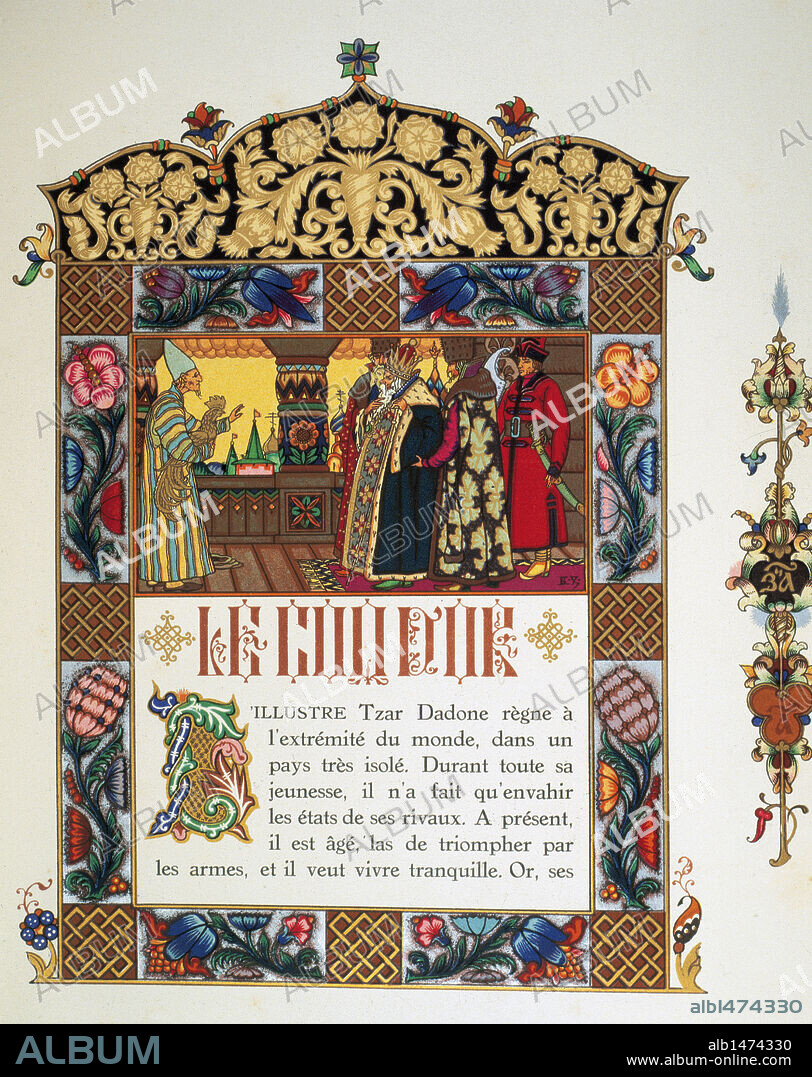 LE COQ D'OR
L'ILLUSTRE Tzar Dadone règne à
l'extrémité du monde, dans un
pays très isolé. Durant toute sa
jeunesse, il n'a fait qu'envahir
les états de ses rivaux. A présent,
il est âgé, las de triompher par
les armes, et il veut vivre tranquille. Or, ses
alb1474330
ALBUM
alb1474330
www.album-online.com